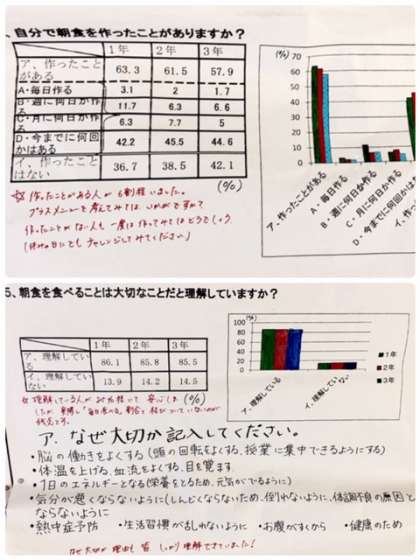 、自分で朝食を作ったことがありますか？
1年 2年 3年
ア、作ったことがある 63.3 61.5 57.9
A・毎日作る 3.1 2 1.7
B・週に何日か作る 11.7 6.3 6.6
C・月に何日か作る 6.3 7.7 5
D・今までに何回かはある 42.2 45.5 44.6
イ、作ったことはない 36.7 38.5 42.1
(%)
作ったことがある人が6割程いました。
プラスメニューを考えてみてはいかがですか？
作ったことがない人も一度は作ってみてはどうでしょう
(休みの日にでもチャレンジしてみてください)
(%)
70
60
50
40
30
20
10
0
ア・作ったことがある
A・毎日作る
B・週に何日か作る
C・月に何日か作る
D・今までに何回かはある
イ・作
5、朝食を食べることは大切なことだと理解していますか？
1年 2年 3年
ア、理解している 86.1 85.8 85.5
イ、理解していない 13.9 14.2 14.5
(%)
理解している人が
(%)
100
80
60
40
20
0
ア・理解している
イ・理解していない
1年
2年
3年
ア．なぜ大切か記入してください。
・脳の働きをよくする(頭の回転をよくする、授業に集中できるようにする)
・体温を上げる、血流をよくする、目を覚ます
・1日のエネルギーとなる(栄養をとるため、元気がでるように)
・気分が悪くならないように(しんどくならないため、倒れないように、体調不良の原因とならないように
・熱中症予防 ・生活習慣が乱れないように ・お腹がすくから ・健康のため
大切か理由も皆しっかり理解できていました！